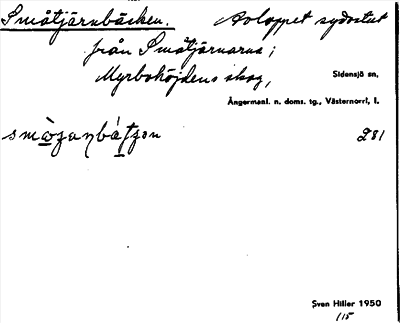 Småtjärnbäcken. Avloppet sydostut
från Småtjärnarna i
Myrbohöjdens skog, Sidensjö sn,
Ångermanl. n. doms. tg., Västernorrl, l.
281
Sven Hiller 1950
115